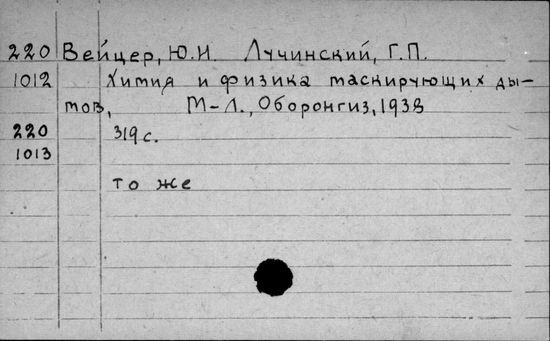 220 Вейцер, Ю.И. Лучинский, Г.П.
1012 Химия и физика маскирующих ды-
мов, М-Л., Оборонгиз, 1938
220 319 с.
1013
то же